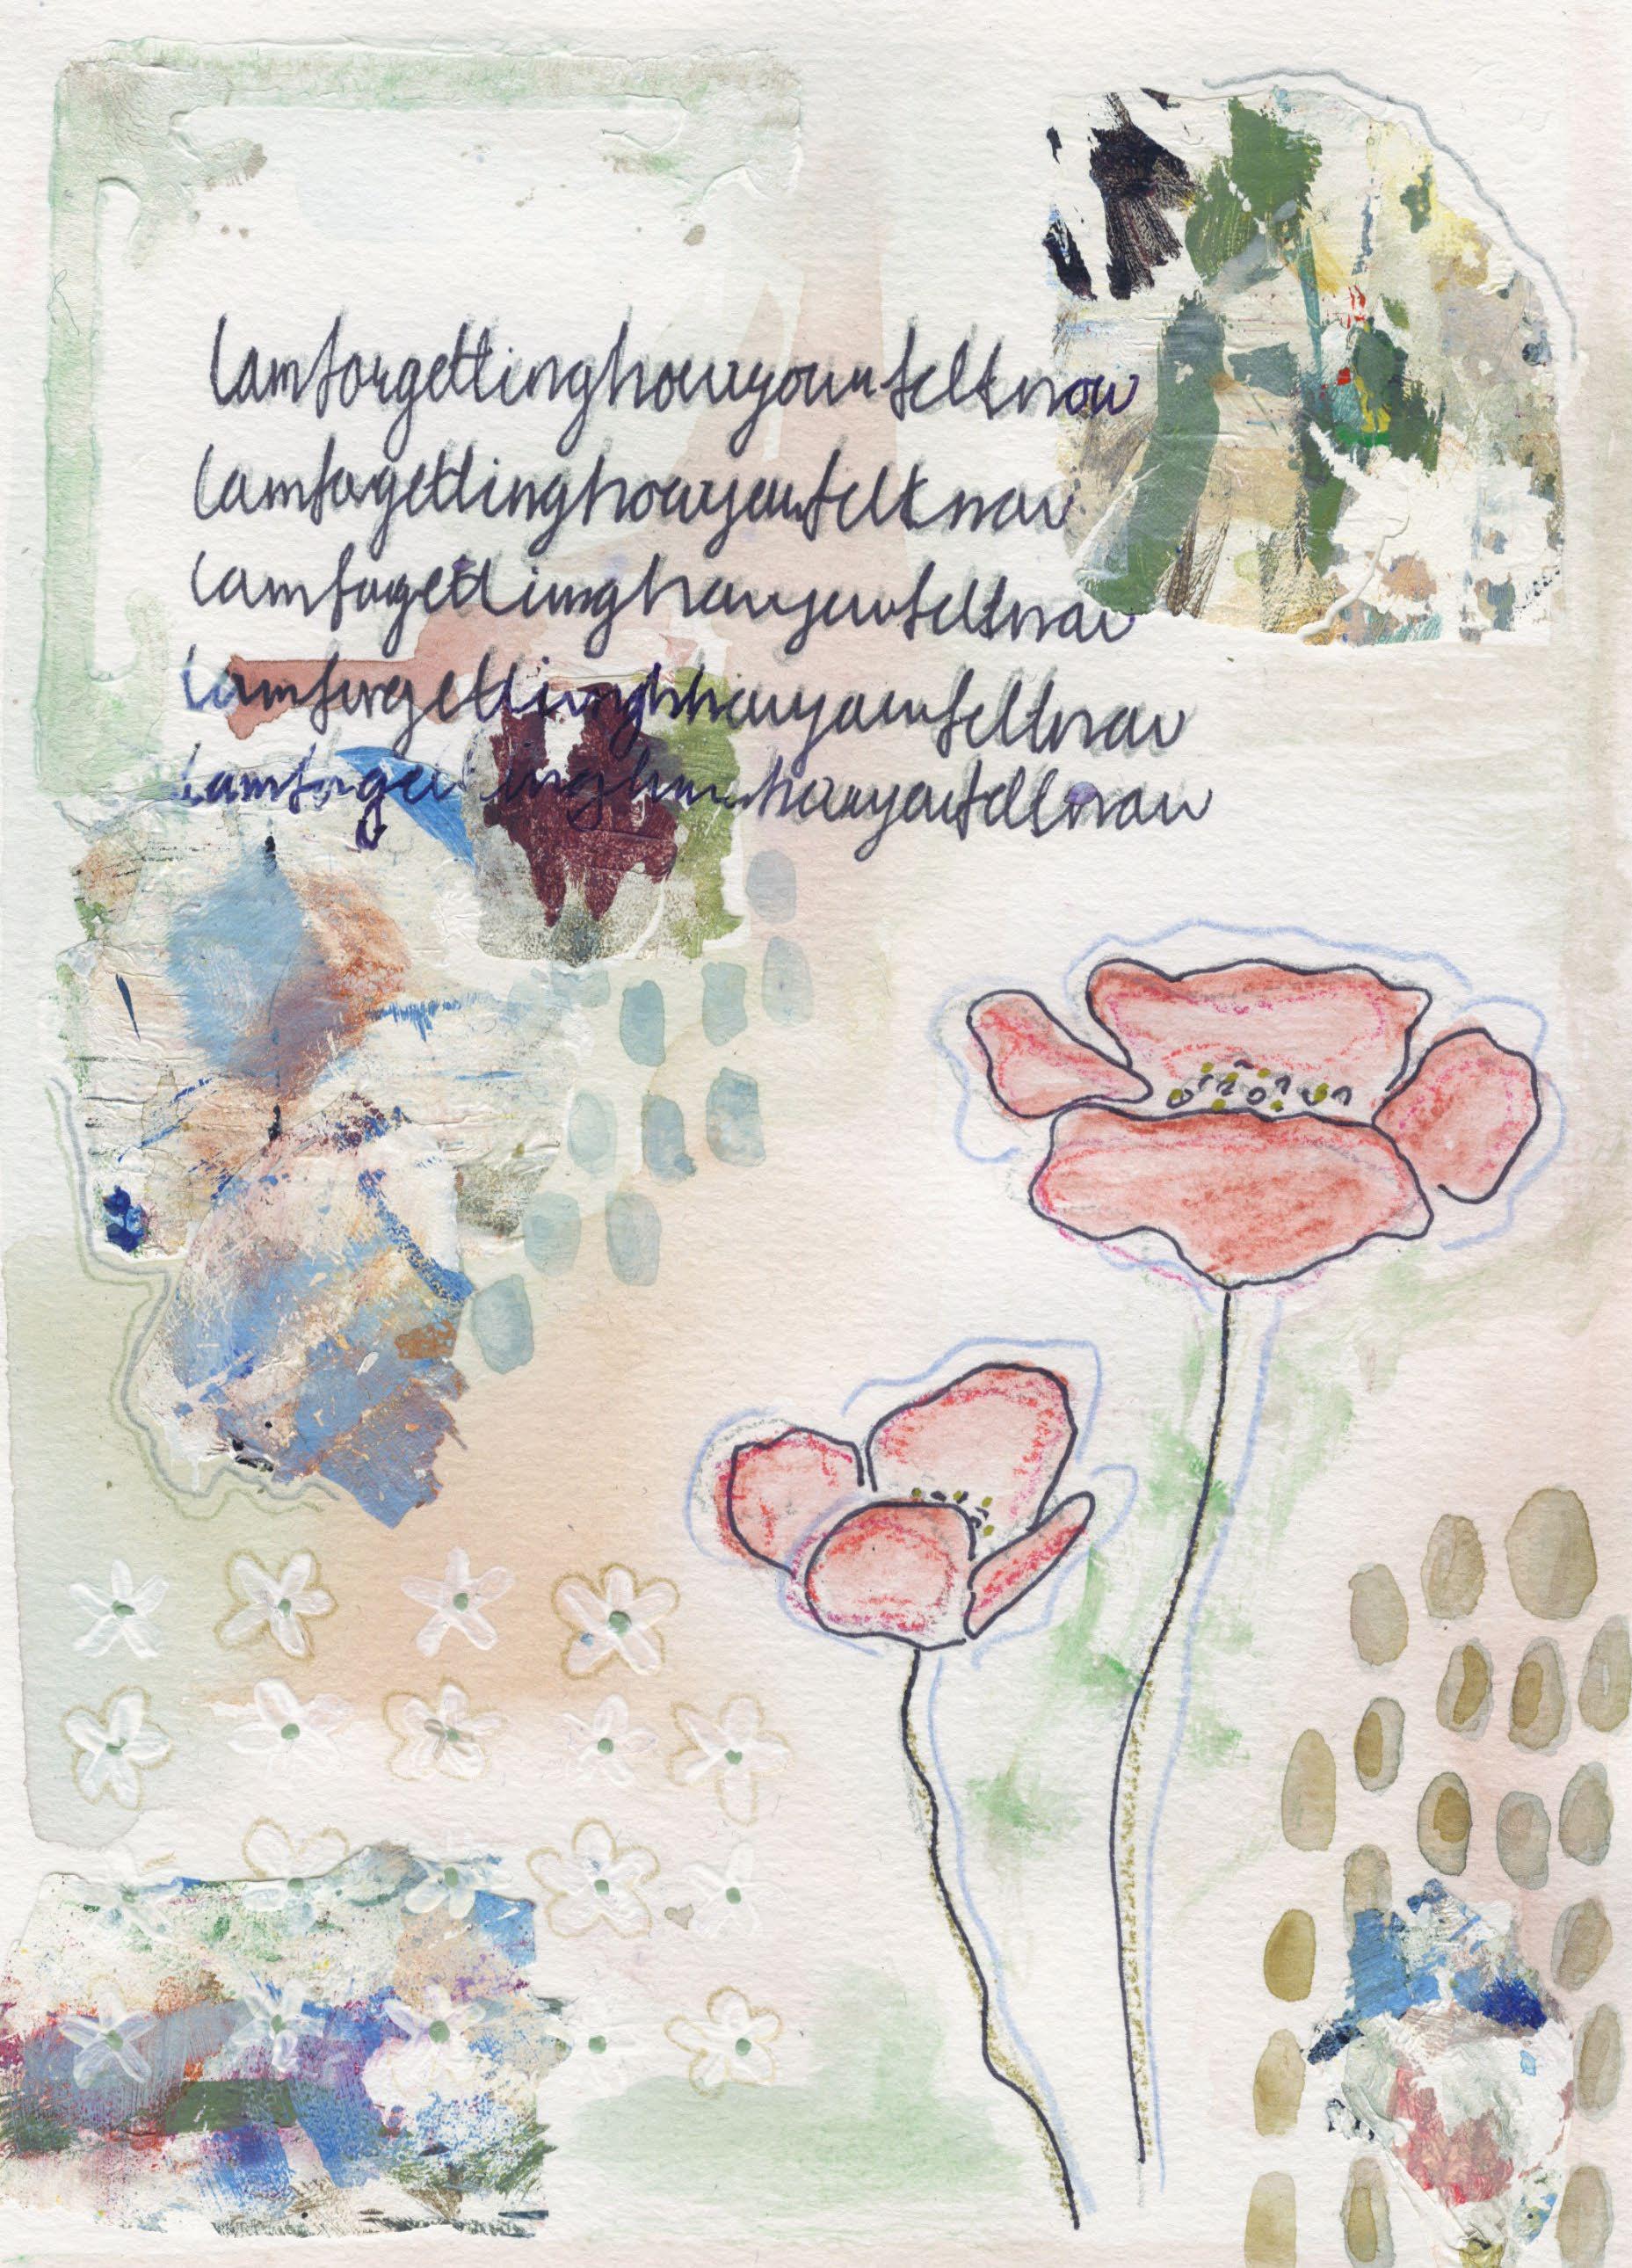 Iamforgettinghowyoufeltnow
Iamforgettinghowyoufeltnow
Iamforgettinghowyoufeltnow
Iamforgettinghhowyoufeltnow
Iamforgettinghowyoufeltnow